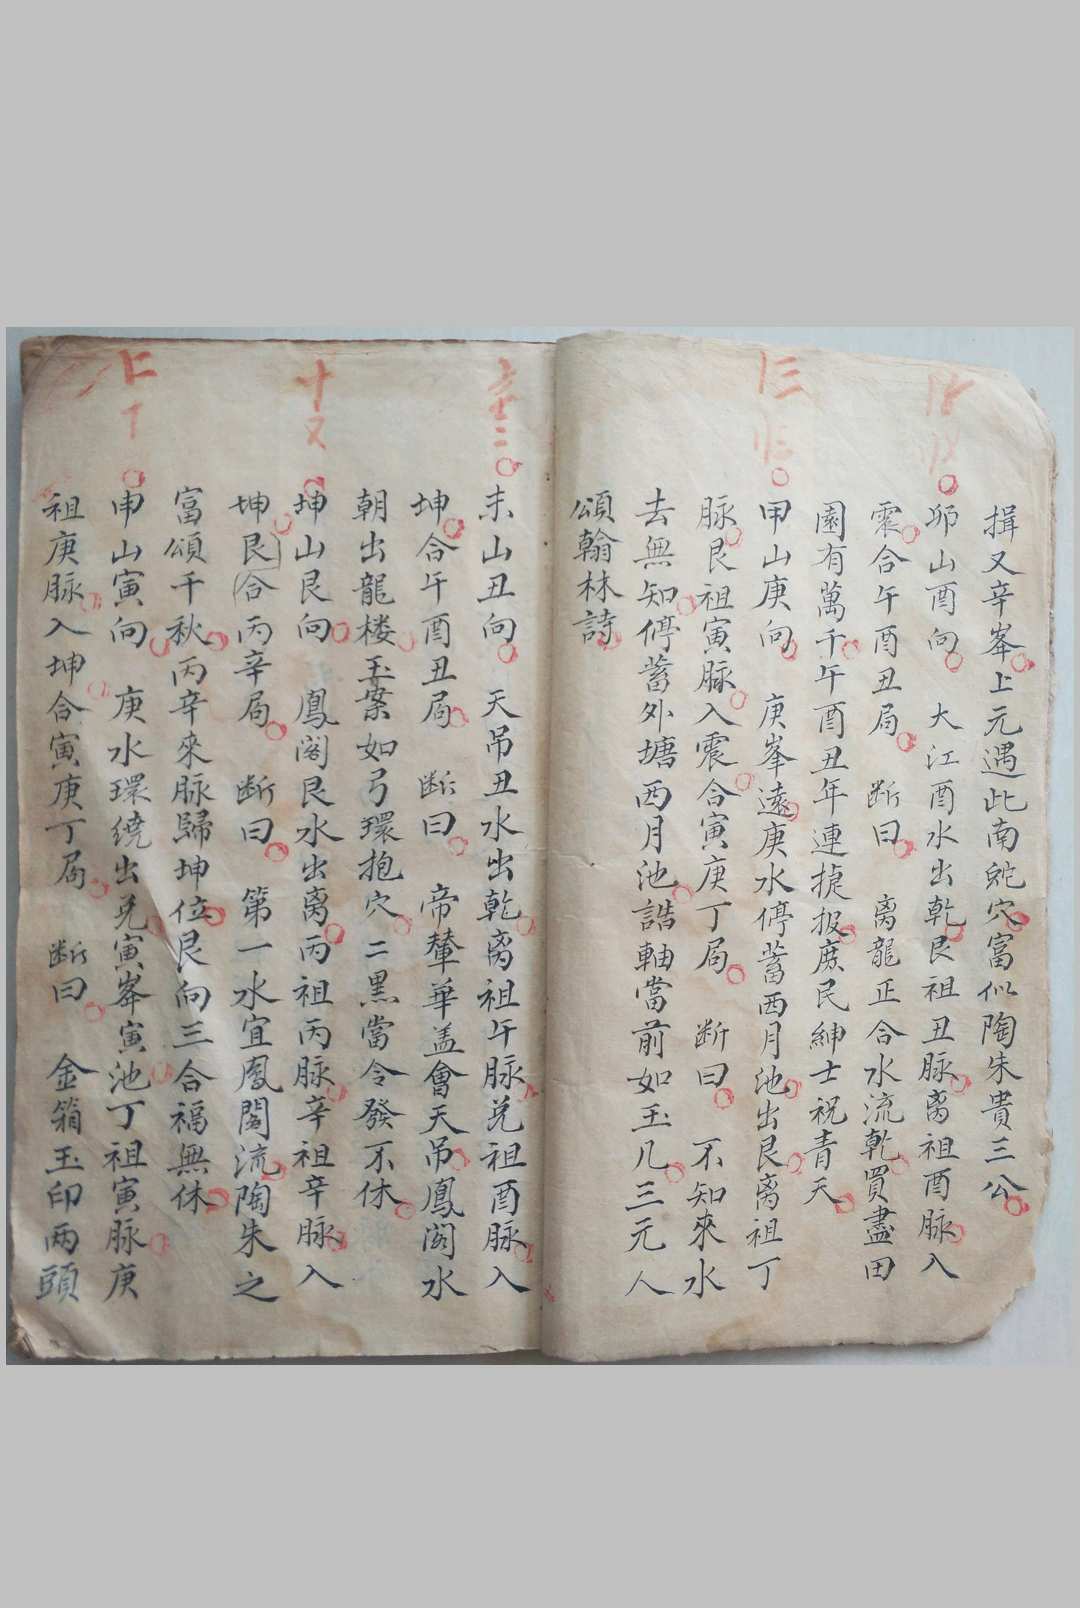 揖又辛峯上元遇此南蛇穴富似陶朱貴三公
卯山酉向 大江酉水出乾艮祖丑脉离祖酉脉入
震合午酉丑局 断曰 离龍正合水流乾買盡田
園有萬千午酉丑年連捷报庶民紳士祝青天
甲山庚向 庚峯遠庚水停蓄西月池出艮离祖丁
脉艮祖寅脉入震合寅庚丁局 断曰 不知來水
去無知停蓄外塘西月池誥軸當前如玉几三元人
頌翰林詩
未山丑向 天吊丑水出乾离祖午脉兑祖酉脉入
坤合午酉丑局 断曰 帝輦華盖會天吊鳳阁水
朝出龍楼玉案如弓環抱穴二黑當令發不休
坤山艮向 鳳阁艮水出离丙祖丙脉辛祖辛脉入
坤艮合丙辛局 断曰 第一水宜鳳閣流陶朱之
富頌千秋丙辛來脉歸坤位艮向三合福無休
申山寅向 庚水環繞出兑寅峯寅池丁祖寅脉庚
祖庚脉入坤合寅庚丁局 断曰 金箱玉印两頭